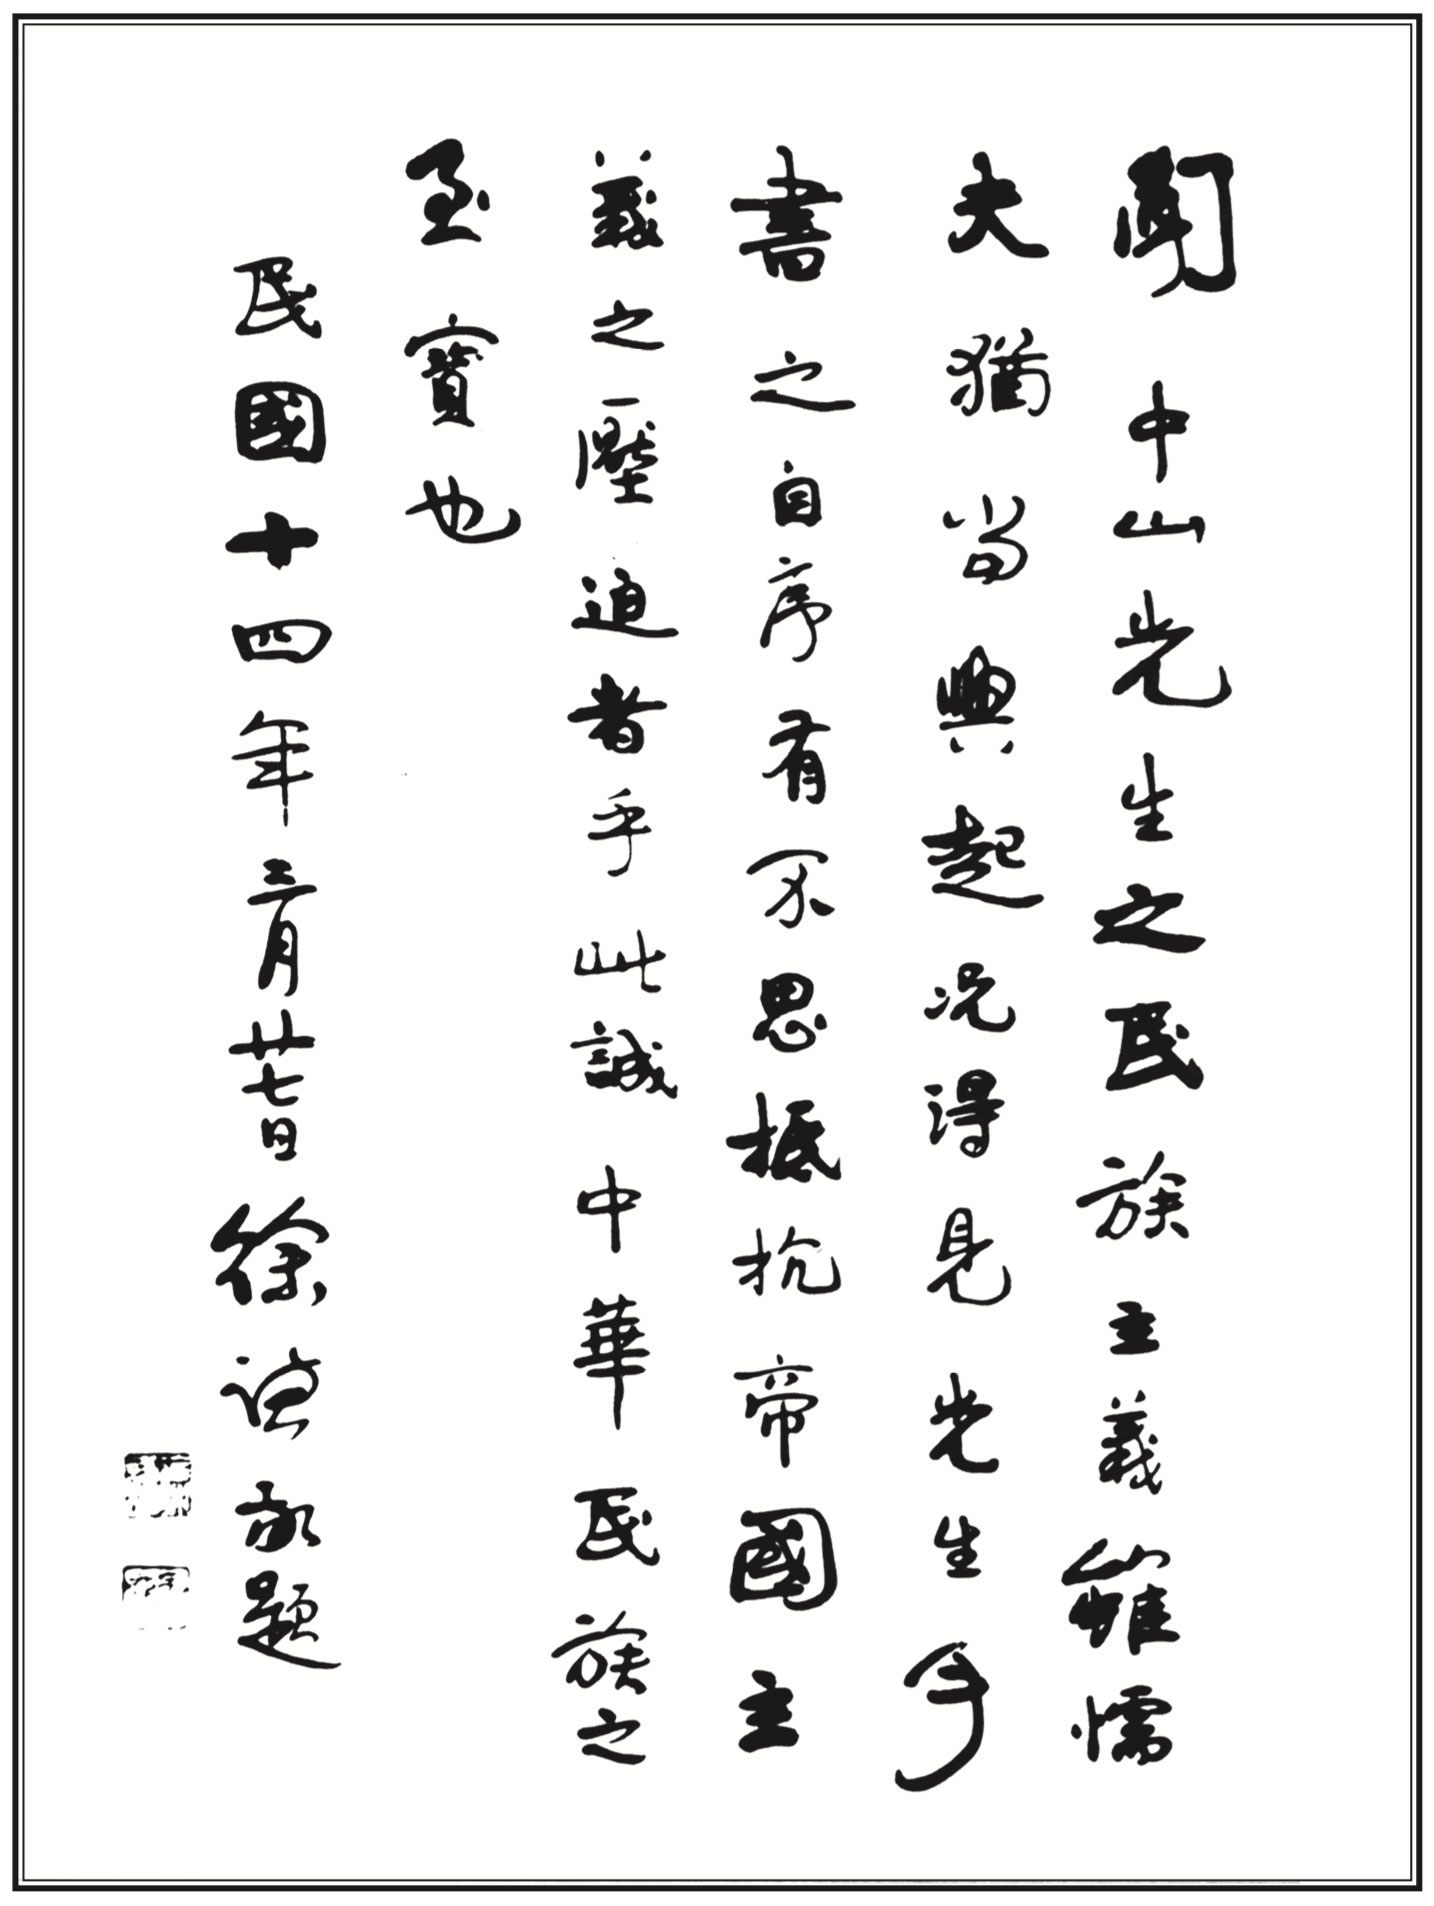 聞中山先生之民族主義雖懦
夫猶當興起况得見先生手
書之自序有不思抵抗帝國主
義之壓迫者乎此誠中華民族之
至寶也
民國十四年三月廿七日徐謙敬題